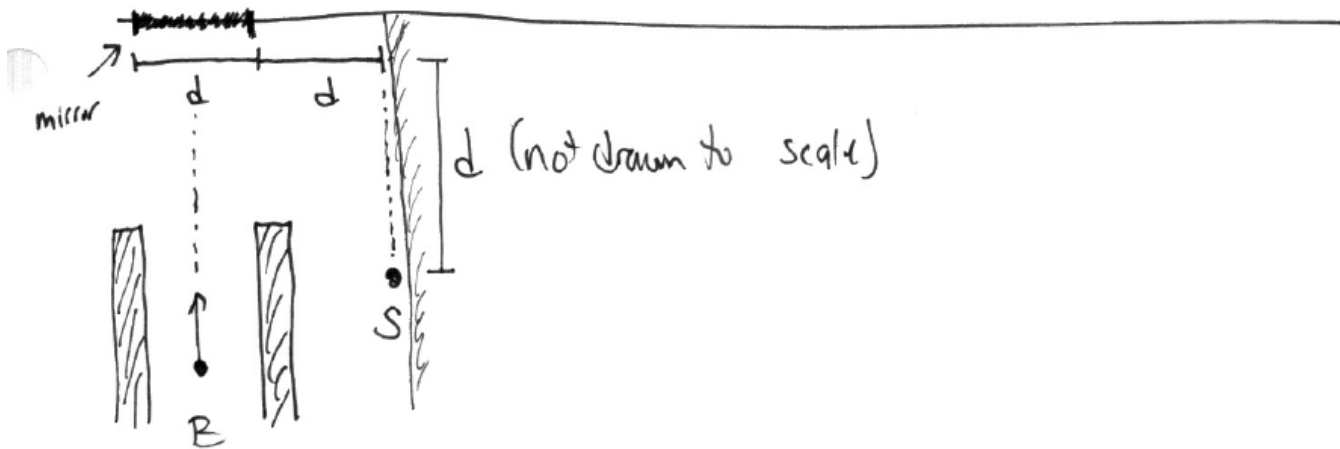 mirror
d
d
d (not drawn to scale)
S
B